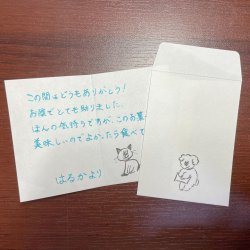 この間はどうもありがとう！
お陰でとても助かりました。
ほんの気持ちですが、このお菓
美味しいのでよかったら食べて
はるかより